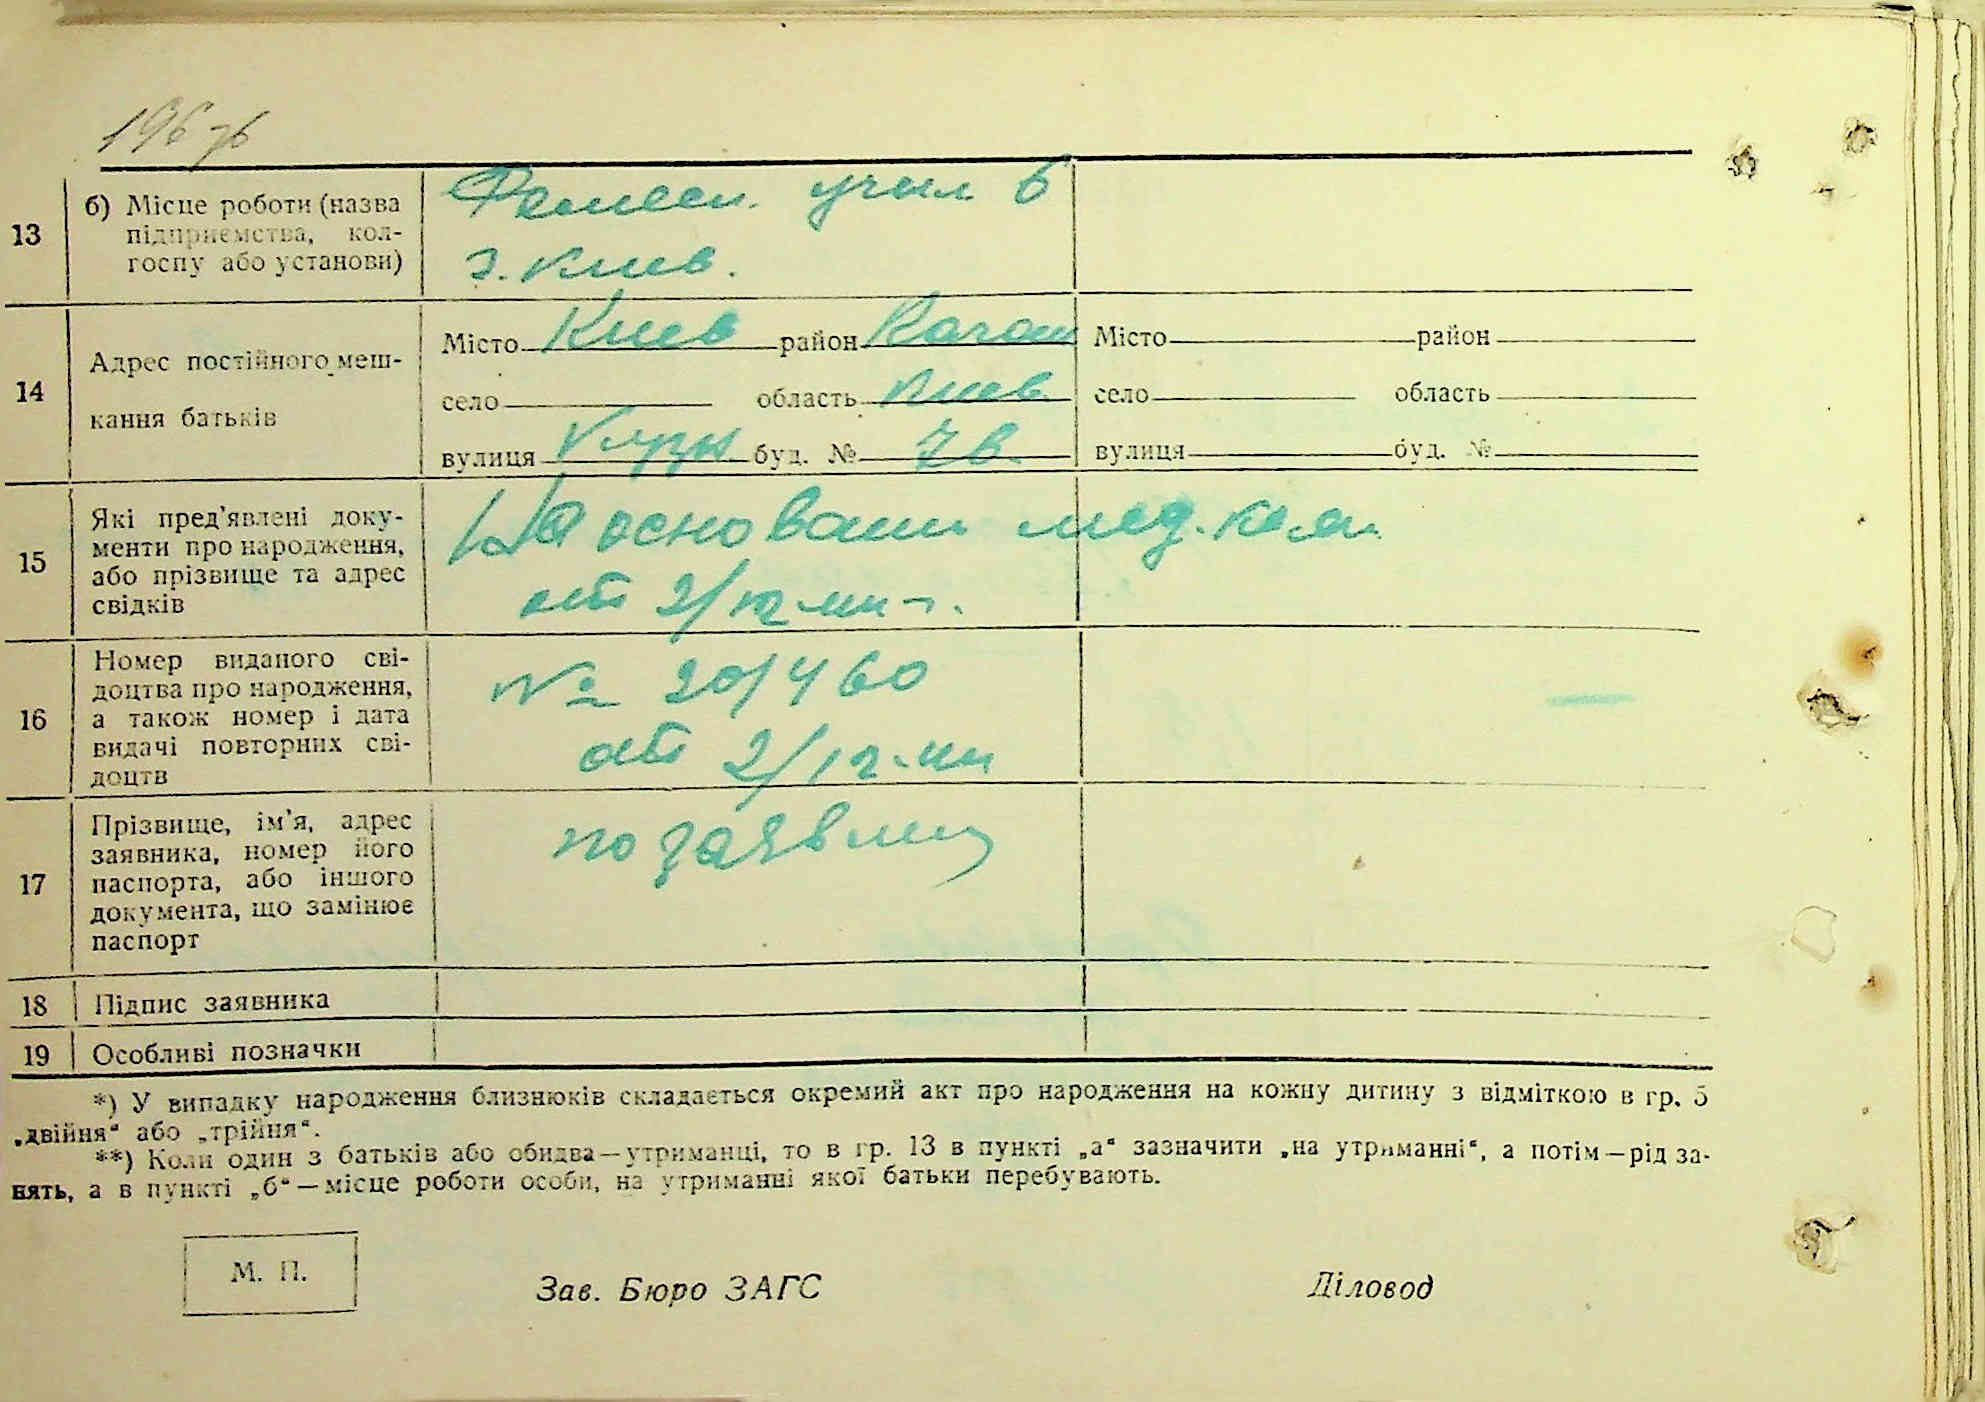 13
б) Місце роботи (назва
підприємства, кол-
госпу або установи)
учил 6
г. Киев.
14
Адрес постійного меш-
кання батьків
Місто Киев район
село область Киев.
вулиця буд. № 7в
Місто район
село область
вулиця буд. №
15
Які пред'явлені доку-
менти про народження,
або прізвище та адрес
свідків
На основании мед.
от 2/12
16
Номер виданого сві-
доцтва про народження,
а також номер і дата
видачі повторних сві-
доцтв
№ 201460
от 2/12
—
17
Прізвище, ім'я, адрес
заявника, номер його
паспорта, або іншого
документа, що замінює
паспорт
по
18
Підпис заявника
19
Особливі позначки
*) У випадку народження близнюків складається окремий акт про народження на кожну дитину з відміткою в гр. 5
„двійня“ або „трійня“.
**) Коли один з батьків або обидва—утриманці, то в гр. 13 в пункті „а“ зазначити „на утриманні“, а потім—рід за-
нять, а в пункті „б“—місце роботи особи, на утриманні якої батьки перебувають.
М. П.
Зав. Бюро ЗАГС
Діловод